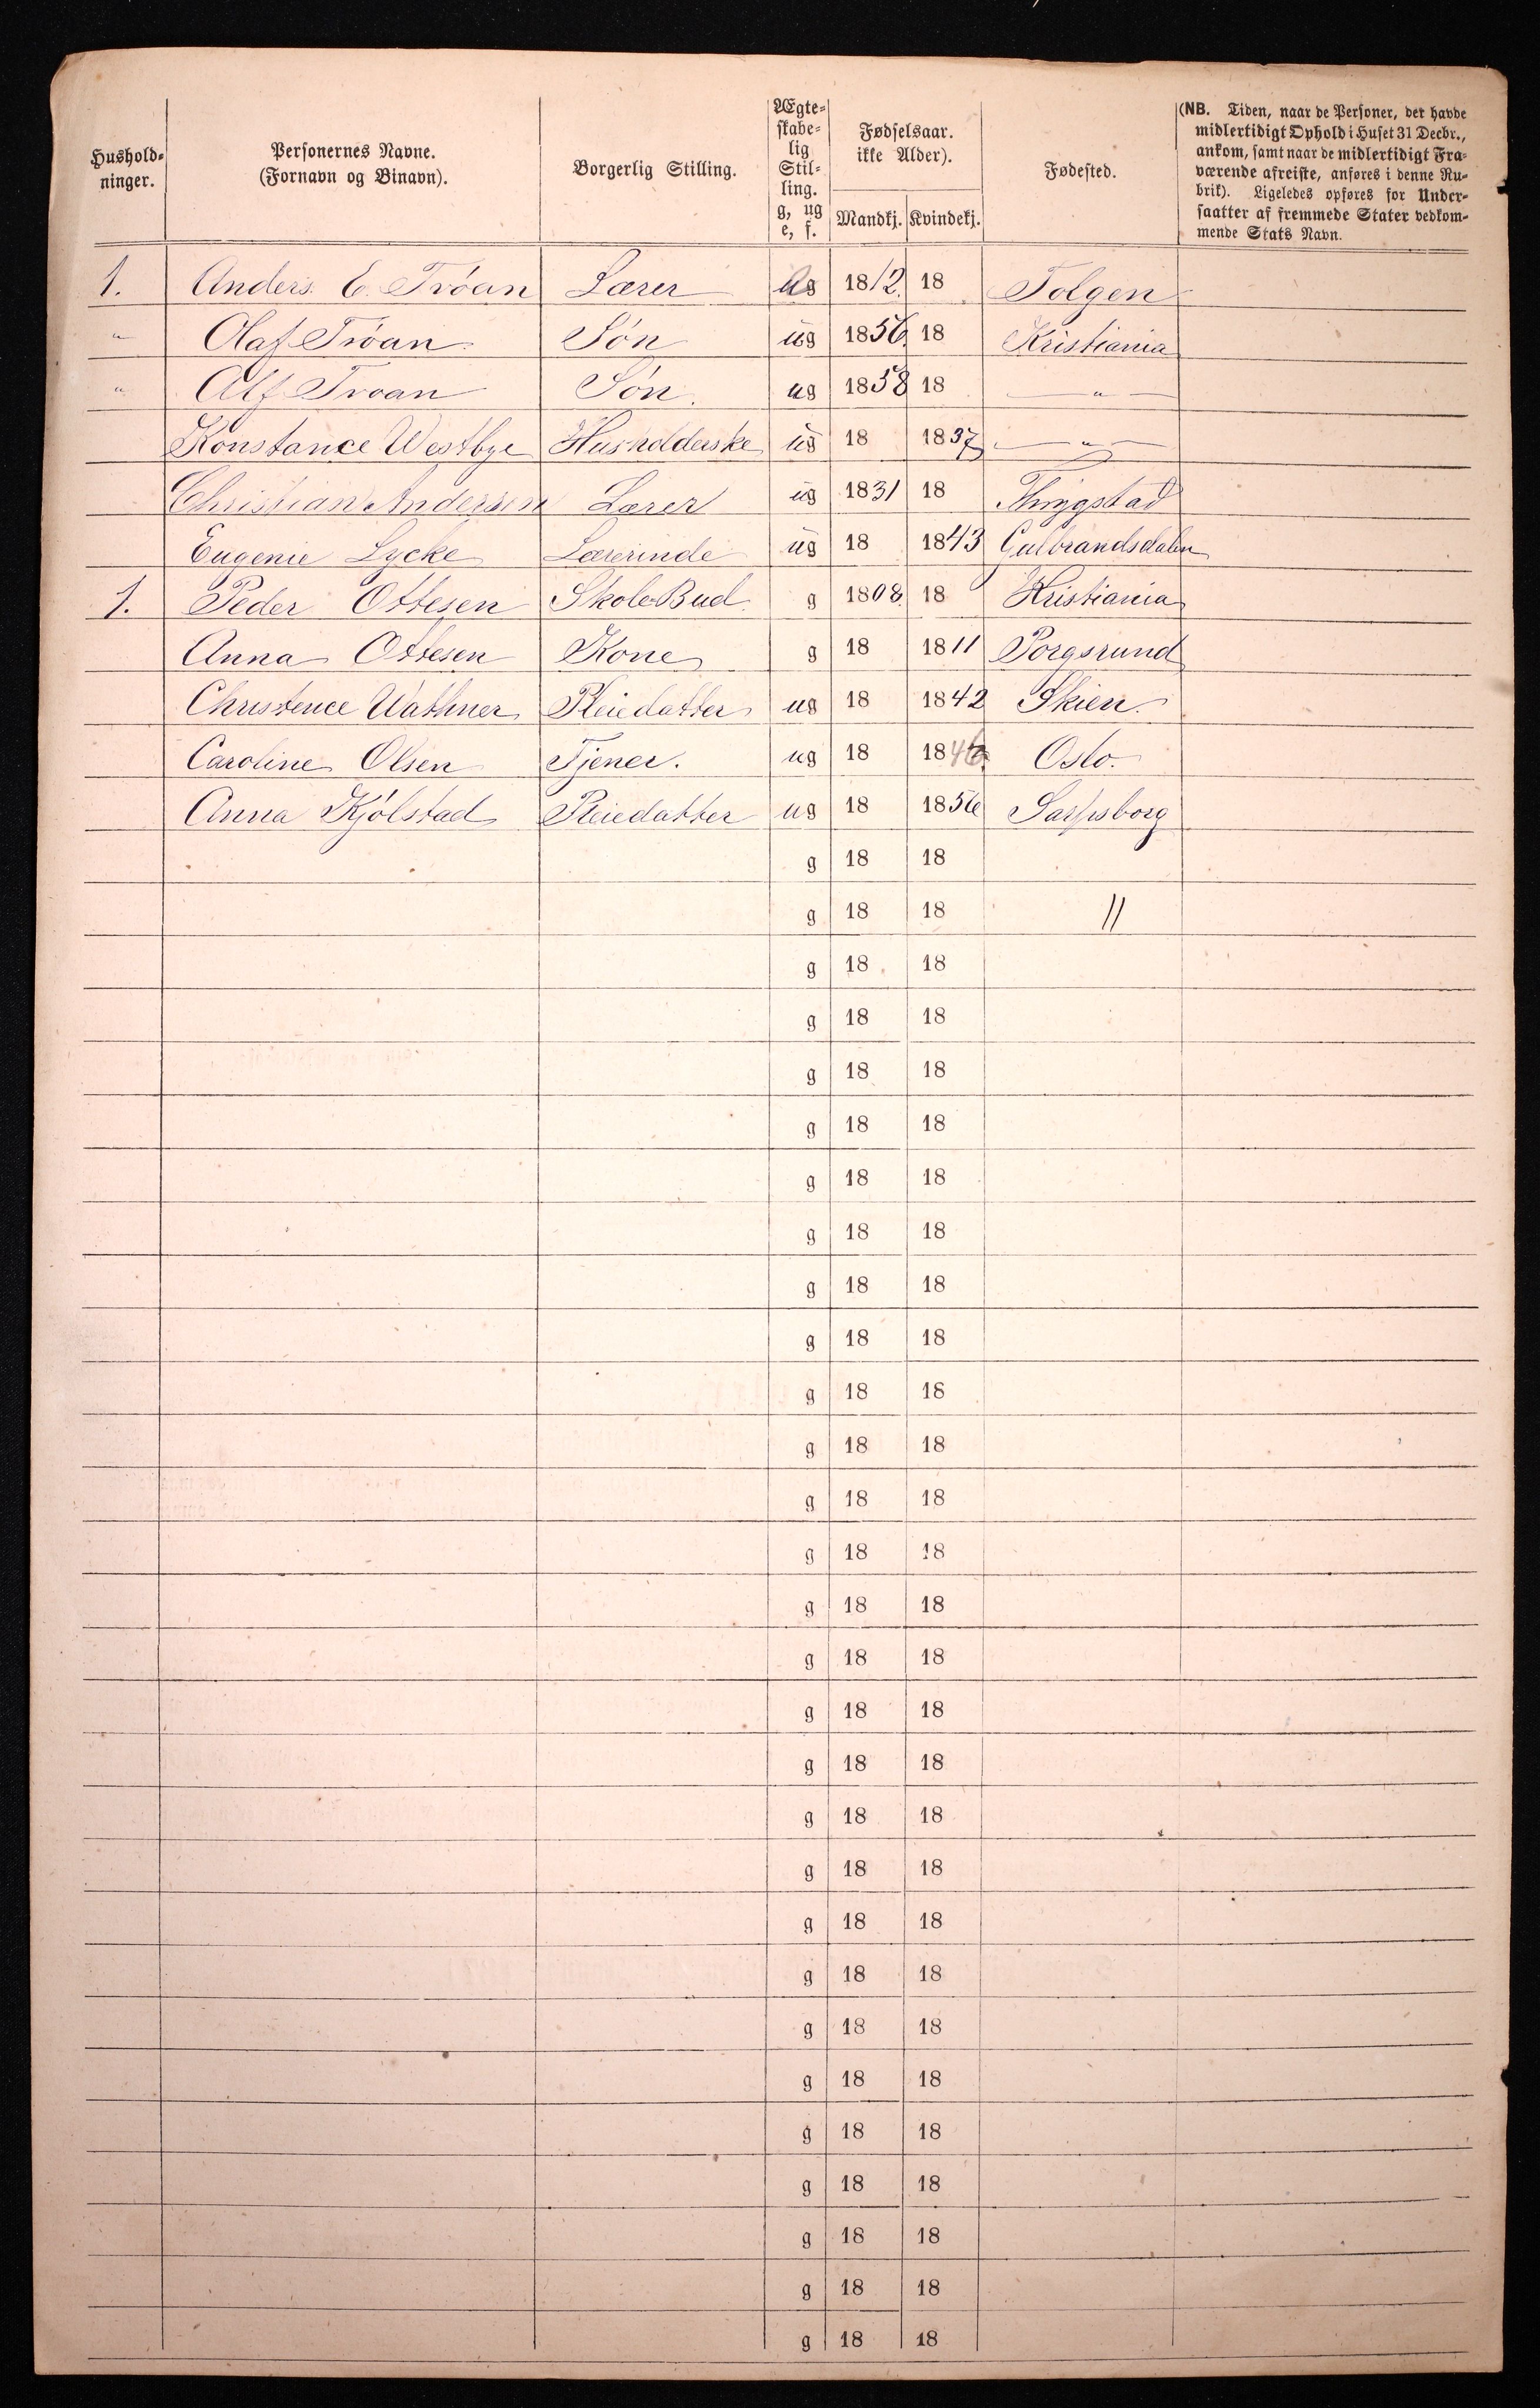 Hushold-
ninger.
Personernes Navne.
(Fornavn og Binavn).
Borgerlig Stilling.
Ægte-
skabe-
lig
Stil-
ling.
g, ug
e, f.
Fødselsaar.
ikke Alder).
Mandkj. Kvindekj.
Fødested.
(NB. Tiden, naar de Personer, der havde
midlertidigt Ophold i Huset 31 Decbr.,
ankom, samt naar de midlertidigt Fra-
værende afreiste, anføres i denne Ru-
brik). Ligeledes opføres for Under-
saatter af fremmede Stater vedkom-
mende Stats Navn.
1. Anders. E. Tróan Lærer g 1812. 18 Tolgen
" Olaf Tróan Søn ug 1856. 18 Kristiania
" Alf Troan Søn. ug 1858 18 — " —
Konstance Westbye ug 18 1837 — " —
Christian Andersen Lærer ug 1831 18
Eugenie Lycke Lærerinde ug 18 1843 Gulbrandsdalen
1. Peder Ottesen Skole Bud. g 1808. 18 Kristiania
Anna Ottesen Kone g 18 1811 Porgsrund
Christence Wathner Pleiedatter ug 18 1842 Skien.
Caroline Olsen Tjener. ug 18 1846 Oslo.
Anna Kjólstad Pleiedatter ug 18 1856 Sarpsborg
g 18 18
g 18 18 //
g 18 18
g 18 18
g 18 18
g 18 18
g 18 18
g 18 18
g 18 18
g 18 18
g 18 18
g 18 18
g 18 18
g 18 18
g 18 18
g 18 18
g 18 18
g 18 18
g 18 18
g 18 18
g 18 18
g 18 18
g 18 18
g 18 18
g 18 18
g 18 18
g 18 18
g 18 18
g 18 18